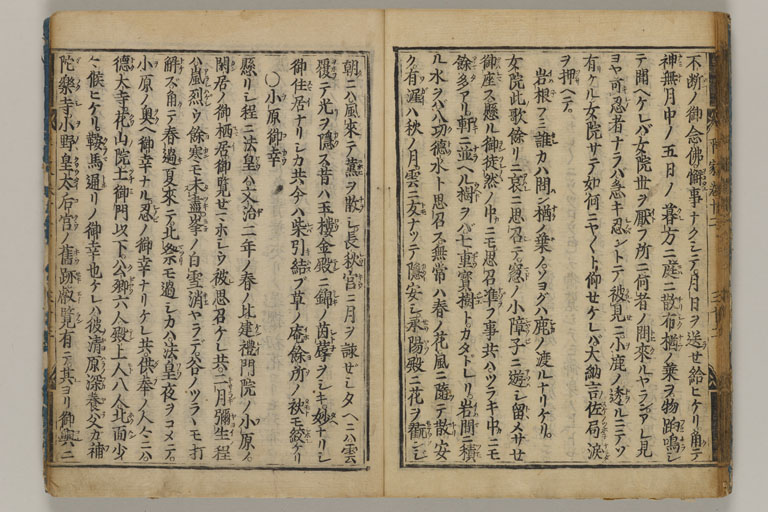 不断ノ御念佛懈事ナクシテ月日ヲ送セ給ヒケリ角テ
神無月中ノ五日ノ暮方ニ庭ニ散布楢ノ葉ヲ物踏鳴シ
テ聞ヘケレバ女院世ヲ厭フ所ニ何者ノ問來ルヤランアレ見
ヨヤ可忍者ナラバ急キ忍ントテ被見ニ小鹿ノ逶ルニテソ
有ケル女院サテ如何ニヤ〱ト仰セケレバ大納言佐局涙
ヲ押ヘテ
岩根フミ誰カハ問ン楢ノ葉ノソヨグハ鹿ノ渡ルナリケリ
女院此歌餘リニ哀ニ思召テ窓ノ小障子ニ遊シ留サセ
御座ス懸ル御徒然ノ中ニモ思召准フ事共ハツラキ中ニモ
餘多アリ軒ニ並ヘル樹ヲハ七重寳樹トカタドレリ岩間ニ積
ル水ヲハ八功德水ト思召ス無常ハ春ノ花風ニ隨テ散安
ク有涯ハ秋ノ月雲ニ友ナッテ隱安シ承陽殿ニ花ヲ翫シ
朝ニハ風來テ薫ヲ散シ長秋宮ニ月ヲ詠セシタヘニハ雲
覆テ光ヲ隱ス昔ハ玉樓金殿ニ錦ノ茵蓐ヲシキ妙ナリシ
御住居ナリシカ共今ハ柴引結フ草ノ庵餘所ノ袂モ絞ケリ
〇小原御幸
懸リシ程ニ法皇ハ文治二年ノ春ノ比建禮門院ノ小原ノ
閑居ノ御栖居御覧セマホシウ被思召ケレ共二月彌生程
ハ嵐烈ウ餘寒モ未盡峯ノ白雪消ヤラテ谷ノツラヽモ打
解ズ角テ春過夏來テ北祭モ過シカハ法皇夜ヲコメテ
小原ノ奥ヘ御幸ナル忍ノ御幸ナリケレ共供奉ノ人々ニハ
德大寺花山院土御門以下公卿六人殿上人八人北面少々
候ヒケリ鞍馬通リノ御幸也ケレハ彼清原深養父カ補
陀樂寺小野皇太后宮ノ舊跡叡覧有テ其ヨリ御輿ニ